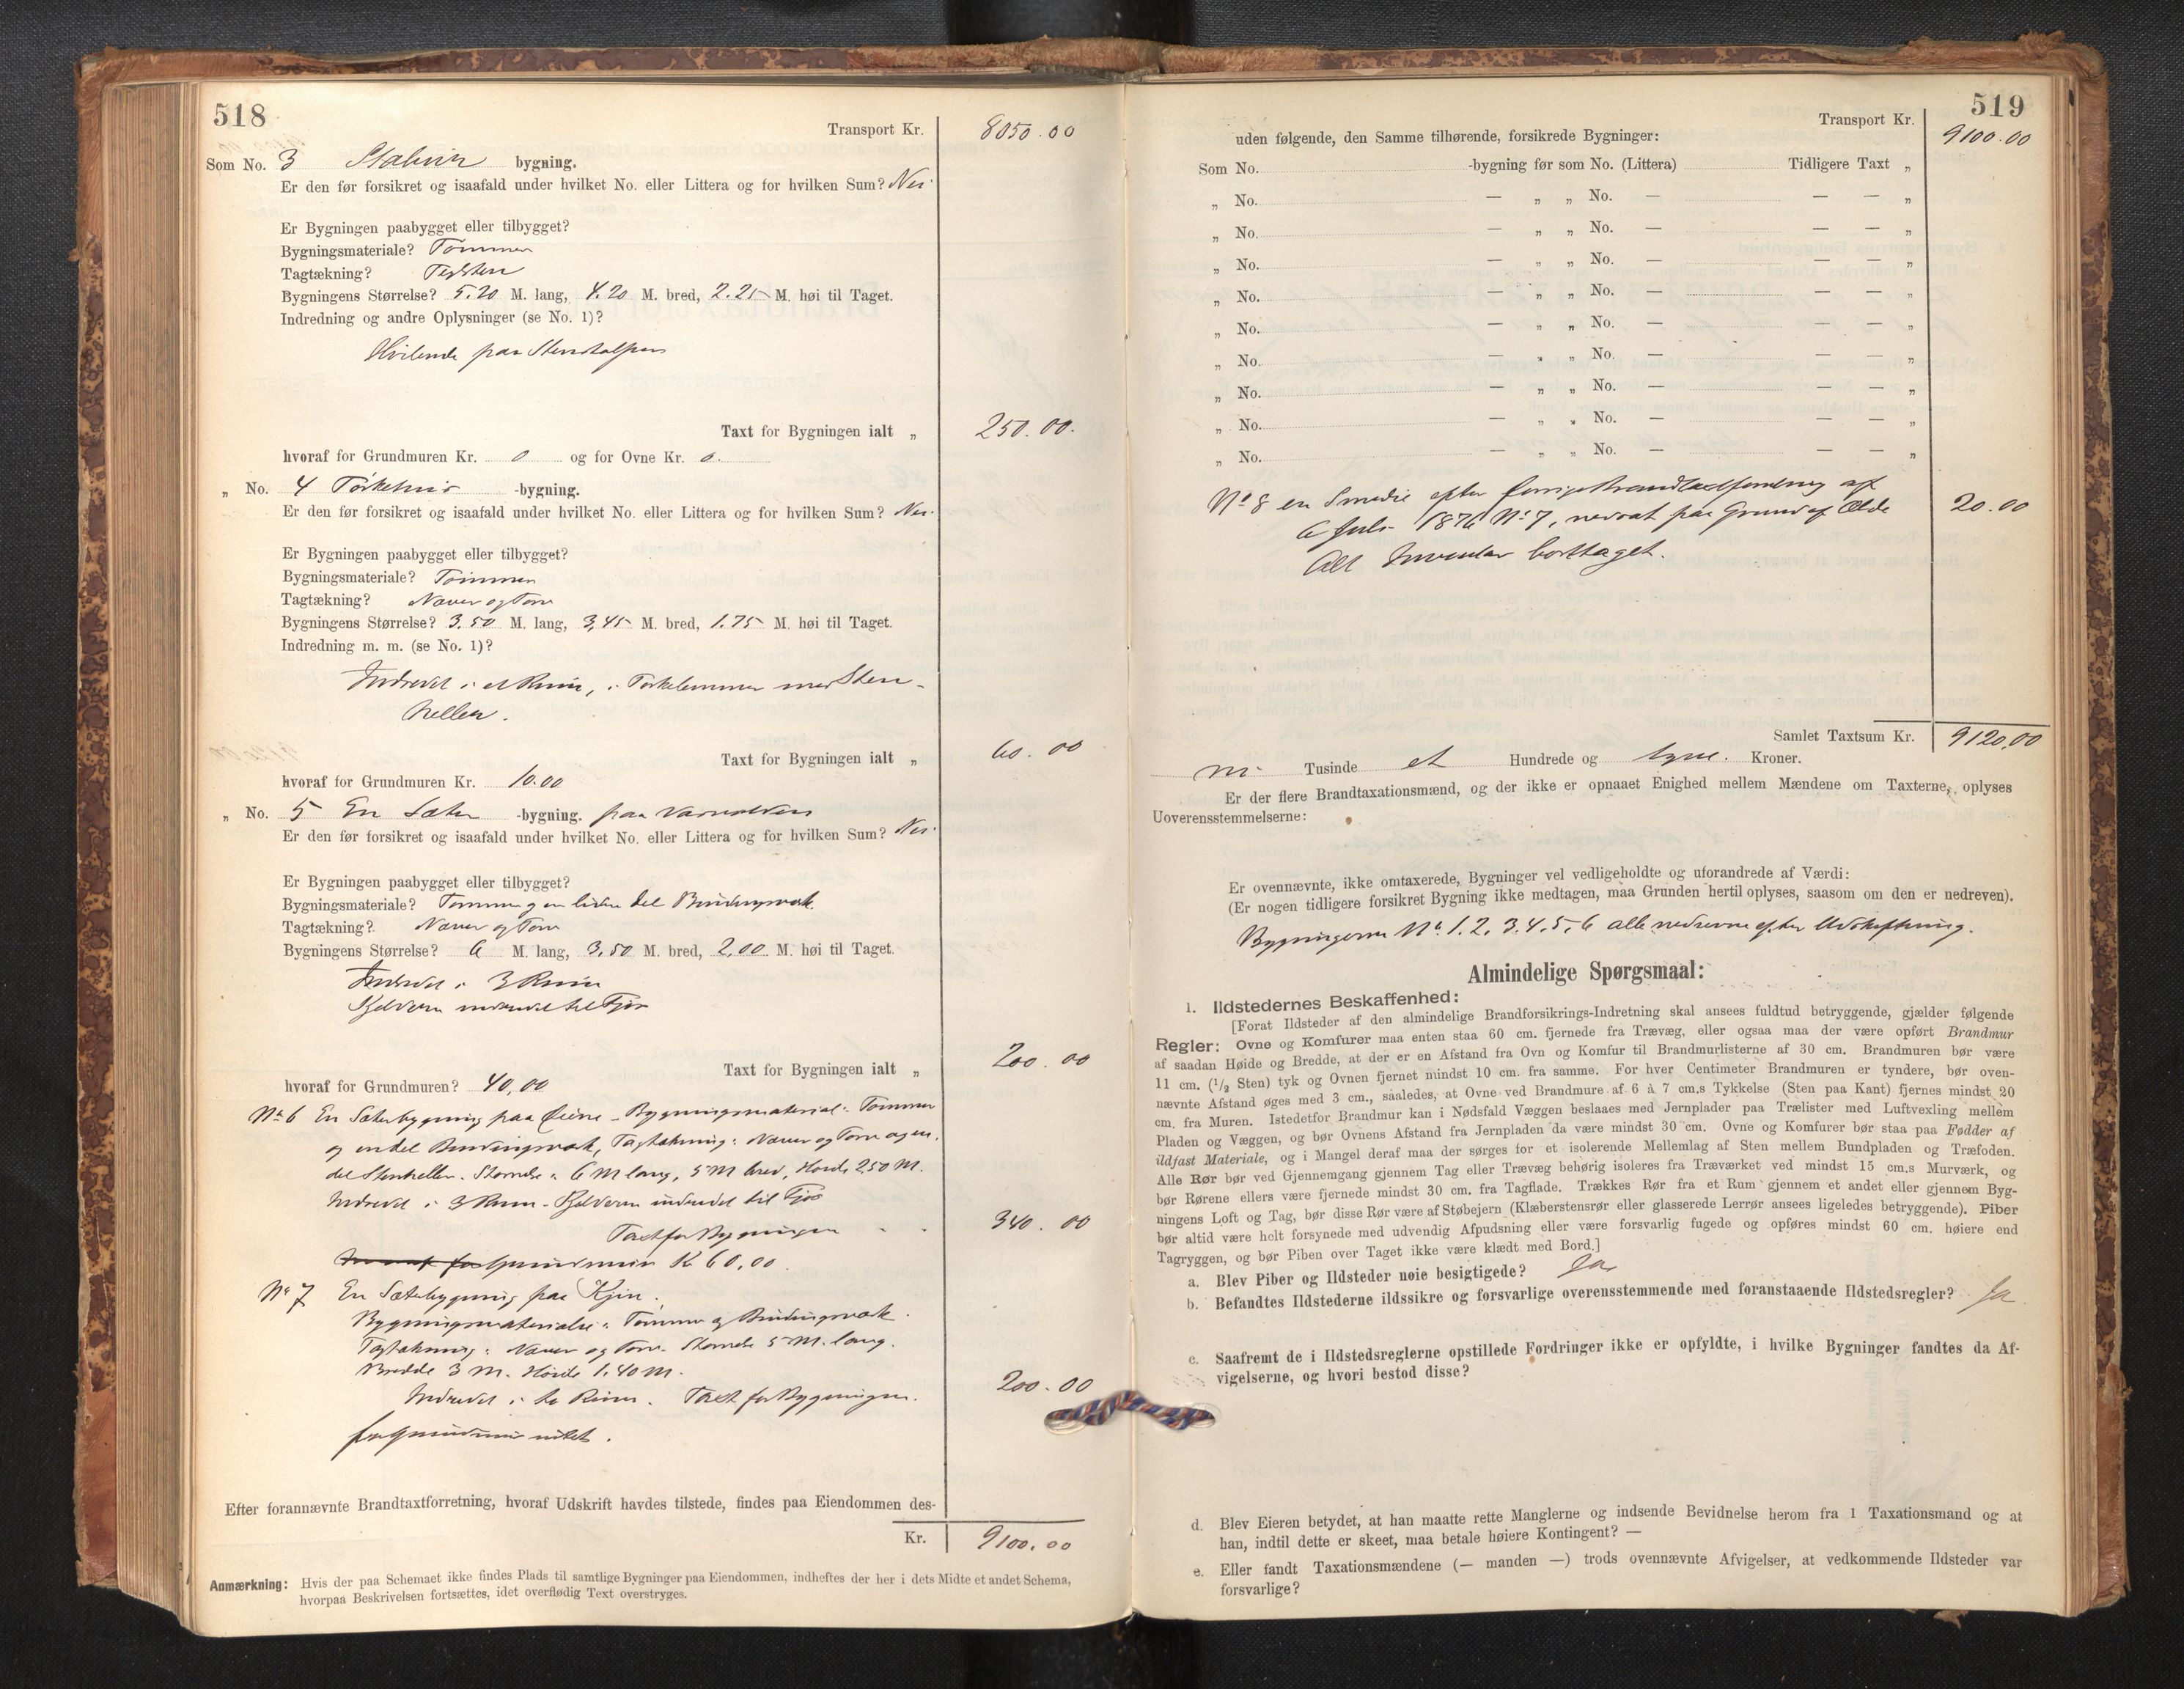 518
Transport Kr. 8050.00
Som No. 3 bygning.
Er den før forsikret og isaafald under hvilket No. eller Littera og for hvilken Sum? Nei
Er Bygningen paabygget eller tilbygget?
Bygningsmateriale? Tømmer
Tagtækning? Teglsten
Bygningens Størrelse? 5.20 M. lang, 4.20 M. bred, 2.25 M. høi til Taget.
Indredning og andre Oplysninger (se No. 1)?
Hvilende paa Stenstolper
Taxt for Bygningen ialt „ 250.00.
hvoraf for Grundmuren Kr. 0 og for Ovne Kr. 0.
„ No. 4 Tørkehus -bygning.
Er den før forsikret og isaafald under hvilket No. eller Littera og for hvilken Sum? Nei.
Er Bygningen paabygget eller tilbygget?
Bygningsmateriale? Tømmer
Tagtækning? Næver og Torv
Bygningens Størrelse? 3.50 M. lang, 3,45 M. bred, 1.75 M. høi til Taget.
Indredning m. m. (se No. 1)?
Indredet i et Rum, i Tørkelemmer med Sten-
heller.
Taxt for Bygningen ialt „ 60.00
hvoraf for Grundmuren Kr. 10.00
„ No. 5 En Sæter -bygning. paa
Er den før forsikret og isaafald under hvilket No. eller Littera og for hvilken Sum? Nei.
Er Bygningen paabygget eller tilbygget?
Bygningsmateriale? Tømmer og en liden del Bindingsværk.
Tagtækning? Næver og Torv
Bygningens Størrelse? 6 M. lang, 3,50 M. bred, 2,00 M. høi til Taget.
Indredet i 3 Rum
Kjelderen indredet til Fjøs
Taxt for Bygningen ialt „ 200.00
hvoraf for Grundmuren? 40,00
No 6 En Sæterbygning paa - Bygningsmaterial: Tømmer
og endel Bindingsværk, Tagtækning: Næver og Torv og en
del Stenheller. Størrelse: 6 M lang, 5 M bred, Høide 2.50 M.
Indredet i 3 Rum - Kjelderen indredet til Fjøs
Taxt for Bygningen 340.00
hvoraf for Grundmur Kr 60,00.
No 7 En Sæterbygning paa Kjin.
Bygningsmateriale: Tømmer og Bindingsværk.
Tagtækning: Næver og Torv. Størrelse 5 M. lang.
Bredde 3 M. Høide 1.40 M.
Indredet i to Rum. Taxt for Bygningen. 200.00
for Grundmur intet.
Efter forannævnte Brandtaxtforretning, hvoraf Udskrift havdes tilstede, findes paa Eiendommen des-
Kr. 9100.00
Anmærkning: Hvis der paa Schemaet ikke findes Plads til samtlige Bygninger paa Eiendommen, indheftes der her i dets Midte et andet Schema,
hvorpaa Beskrivelsen fortsættes, idet overflødig Text overstryges.
519
Transport Kr. 9100.00
uden følgende, den Samme tilhørende, forsikrede Bygninger:
Som No. -bygning før som No. (Littera) Tidligere Taxt „
„ No. — „ „ No. — — — „
„ No. — „ „ No. — — — „
„ No. — „ „ No. — — — „
„ No. — „ „ No. — — — „
„ No. — „ „ No. — — — „
„ No. — „ „ No. — — — „
„ No. — „ „ No. — — — „
„ No. — „ „ No. — — — „
„ No. — „ „ No. — — — „
No 8 en Smedie efter forrige Brandtaxtforretning af
6 Juli 1876 No 7, nedsat paa Grund af Ælde 20.00
Alt Inventar borttaget.
Samlet Taxtsum Kr. 9120,00
ni Tusinde et Hundrede og tyve. Kroner.
Er der flere Brandtaxationsmænd, og der ikke er opnaaet Enighed mellem Mændene om Taxterne, oplyses
Uoverensstemmelserne:
Er ovennævnte, ikke omtaxerede, Bygninger vel vedligeholdte og uforandrede af Værdi:
(Er nogen tidligere forsikret Bygning ikke medtagen, maa Grunden hertil oplyses, saasom om den er nedreven).
Bygningerne No. 1. 2. 3. 4. 5. 6 alle nedrevne efter Udskiftning.
Almindelige Spørgsmaal:
1. Ildstedernes Beskaffenhed:
[Forat Ildsteder af den almindelige Brandforsikrings-Indretning skal ansees fuldtud betryggende, gjælder følgende
Regler: Ovne og Komfurer maa enten staa 60 cm. fjernede fra Trævæg, eller ogsaa maa der være opført Brandmur
af saadan Høide og Bredde, at der er en Afstand fra Ovn og Komfur til Brandmurlisterne af 30 cm. Brandmuren bør være
11 cm. (1/2 Sten) tyk og Ovnen fjernet mindst 10 cm. fra samme. For hver Centimeter Brandmuren er tyndere, bør oven-
nævnte Afstand øges med 3 cm., saaledes, at Ovne ved Brandmure af 6 à 7 cm.s Tykkelse (Sten paa Kant) fjernes mindst 20
cm. fra Muren. Istedetfor Brandmur kan i Nødsfald Væggen beslaaes med Jernplader paa Trælister med Luftvexling mellem
Pladen og Væggen, og bør Ovnens Afstand fra Jernpladen da være mindst 30 cm. Ovne og Komfurer bør staa paa Fødder af
ildfast Materiale, og i Mangel deraf maa der sørges for et isolerende Mellemlag af Sten mellem Bundpladen og Træfoden.
Alle Rør bør ved Gjennemgang gjennem Tag eller Trævæg behørig isoleres fra Træværket ved mindst 15 cm.s Murværk, og
bør Rørene ellers være fjernede mindst 30 cm. fra Tagflade. Trækkes Rør fra et Rum gjennem et andet eller gjennem Byg-
ningens Loft og Tag, bør disse Rør være af Støbejern (Klæberstensrør eller glasserede Lerrør ansees ligeledes betryggende). Piber
bør altid være helt forsynede med udvendig Afpudsning eller være forsvarlig fugede og opføres mindst 60 cm. høiere end
Tagryggen, og bør Piben over Taget ikke være klædt med Bord.]
a. Blev Piber og Ildsteder nøie besigtigede? Ja
b. Befandtes Ildstederne ildssikre og forsvarlige overensstemmende med foranstaaende Ildstedsregler? Ja
c. Saafremt de i Ildstedsreglerne opstillede Fordringer ikke er opfyldte, i hvilke Bygninger fandtes da Af-
vigelserne, og hvori bestod disse?
d. Blev Eieren betydet, at han maatte rette Manglerne og indsende Bevidnelse herom fra 1 Taxationsmand og at
han, indtil dette er skeet, maa betale høiere Kontingent? —
e. Eller fandt Taxationsmændene (— manden —) trods ovennævnte Afvigelser, at vedkommende Ildsteder var
forsvarlige?